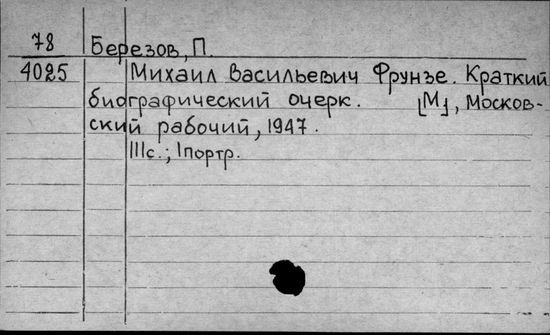 78 Березов, П.
4025 Михаил Васильевич Фрунзе. Краткий
биографический очерк. [М], Москов-
ский рабочий, 1947.
111с.; 1портр.